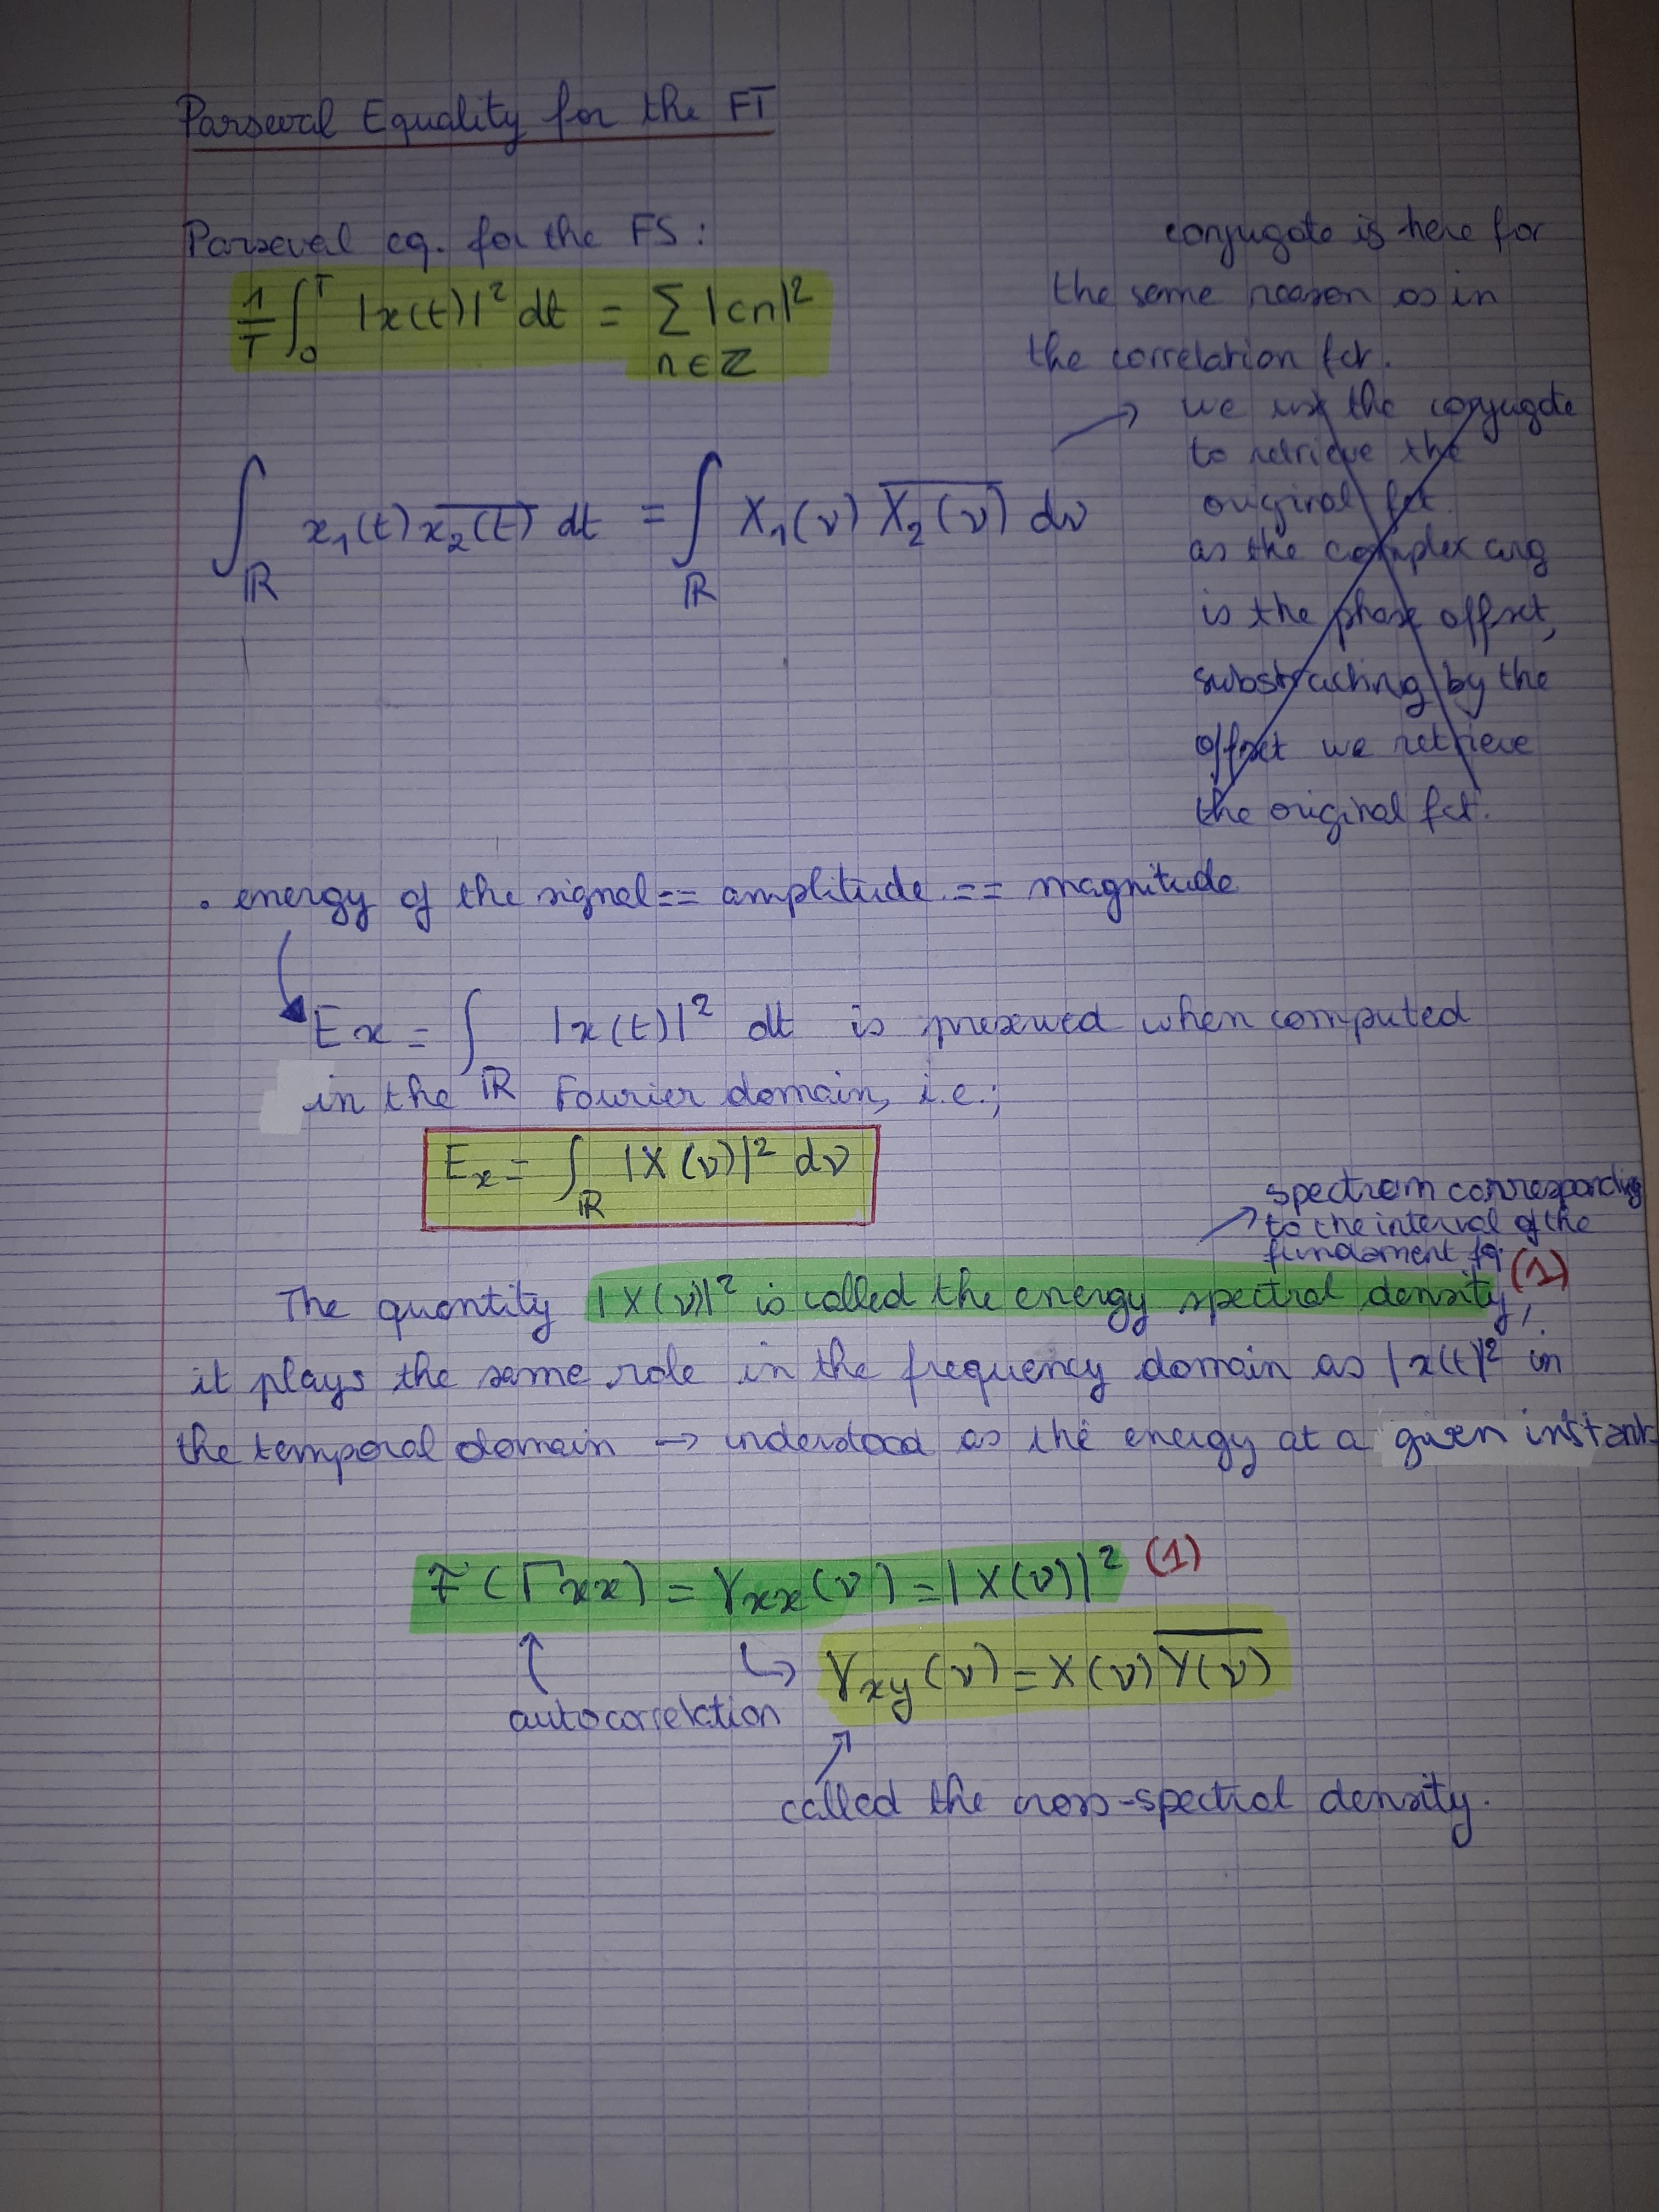 Parseval Equality for the FT
Parseval eq. for the FS :
1/T ∫₀ᵀ |x(t)|² dt = Σ_{n∈ℤ} |cn|²
conjugate is here for
the same reason as in
the correlation fct.
→ we use the conjugate
to retrieve the
original fct.
as the complex arg
is the phase offset,
substracting by the
offset we retrieve
the original fct.
∫_ℝ x₁(t) \overline{x₂(t)} dt = ∫_ℝ X₁(ν) \overline{X₂(ν)} dν
. energy of the signal == amplitude == magnitude
Ex = ∫_ℝ |x(t)|² dt is preserved when computed
in the Fourier domain, i.e.;
Eₓ = ∫_ℝ |X(ν)|² dν
→ spectrem corresponding
to the interval of the
fundament fq.
The quantity |X(ν)|² is called the energy spectral density, (1)
it plays the same role in the frequency domain as |x(t)|² in
the temporal domain → understood as the energy at a given instant
F(Γxx) = γxx(ν) = |X(ν)|² (1)
↑ ↳ γxy(ν) = X(ν) \overline{Y(ν)}
autocorrelation
↗
called the cross-spectral density.